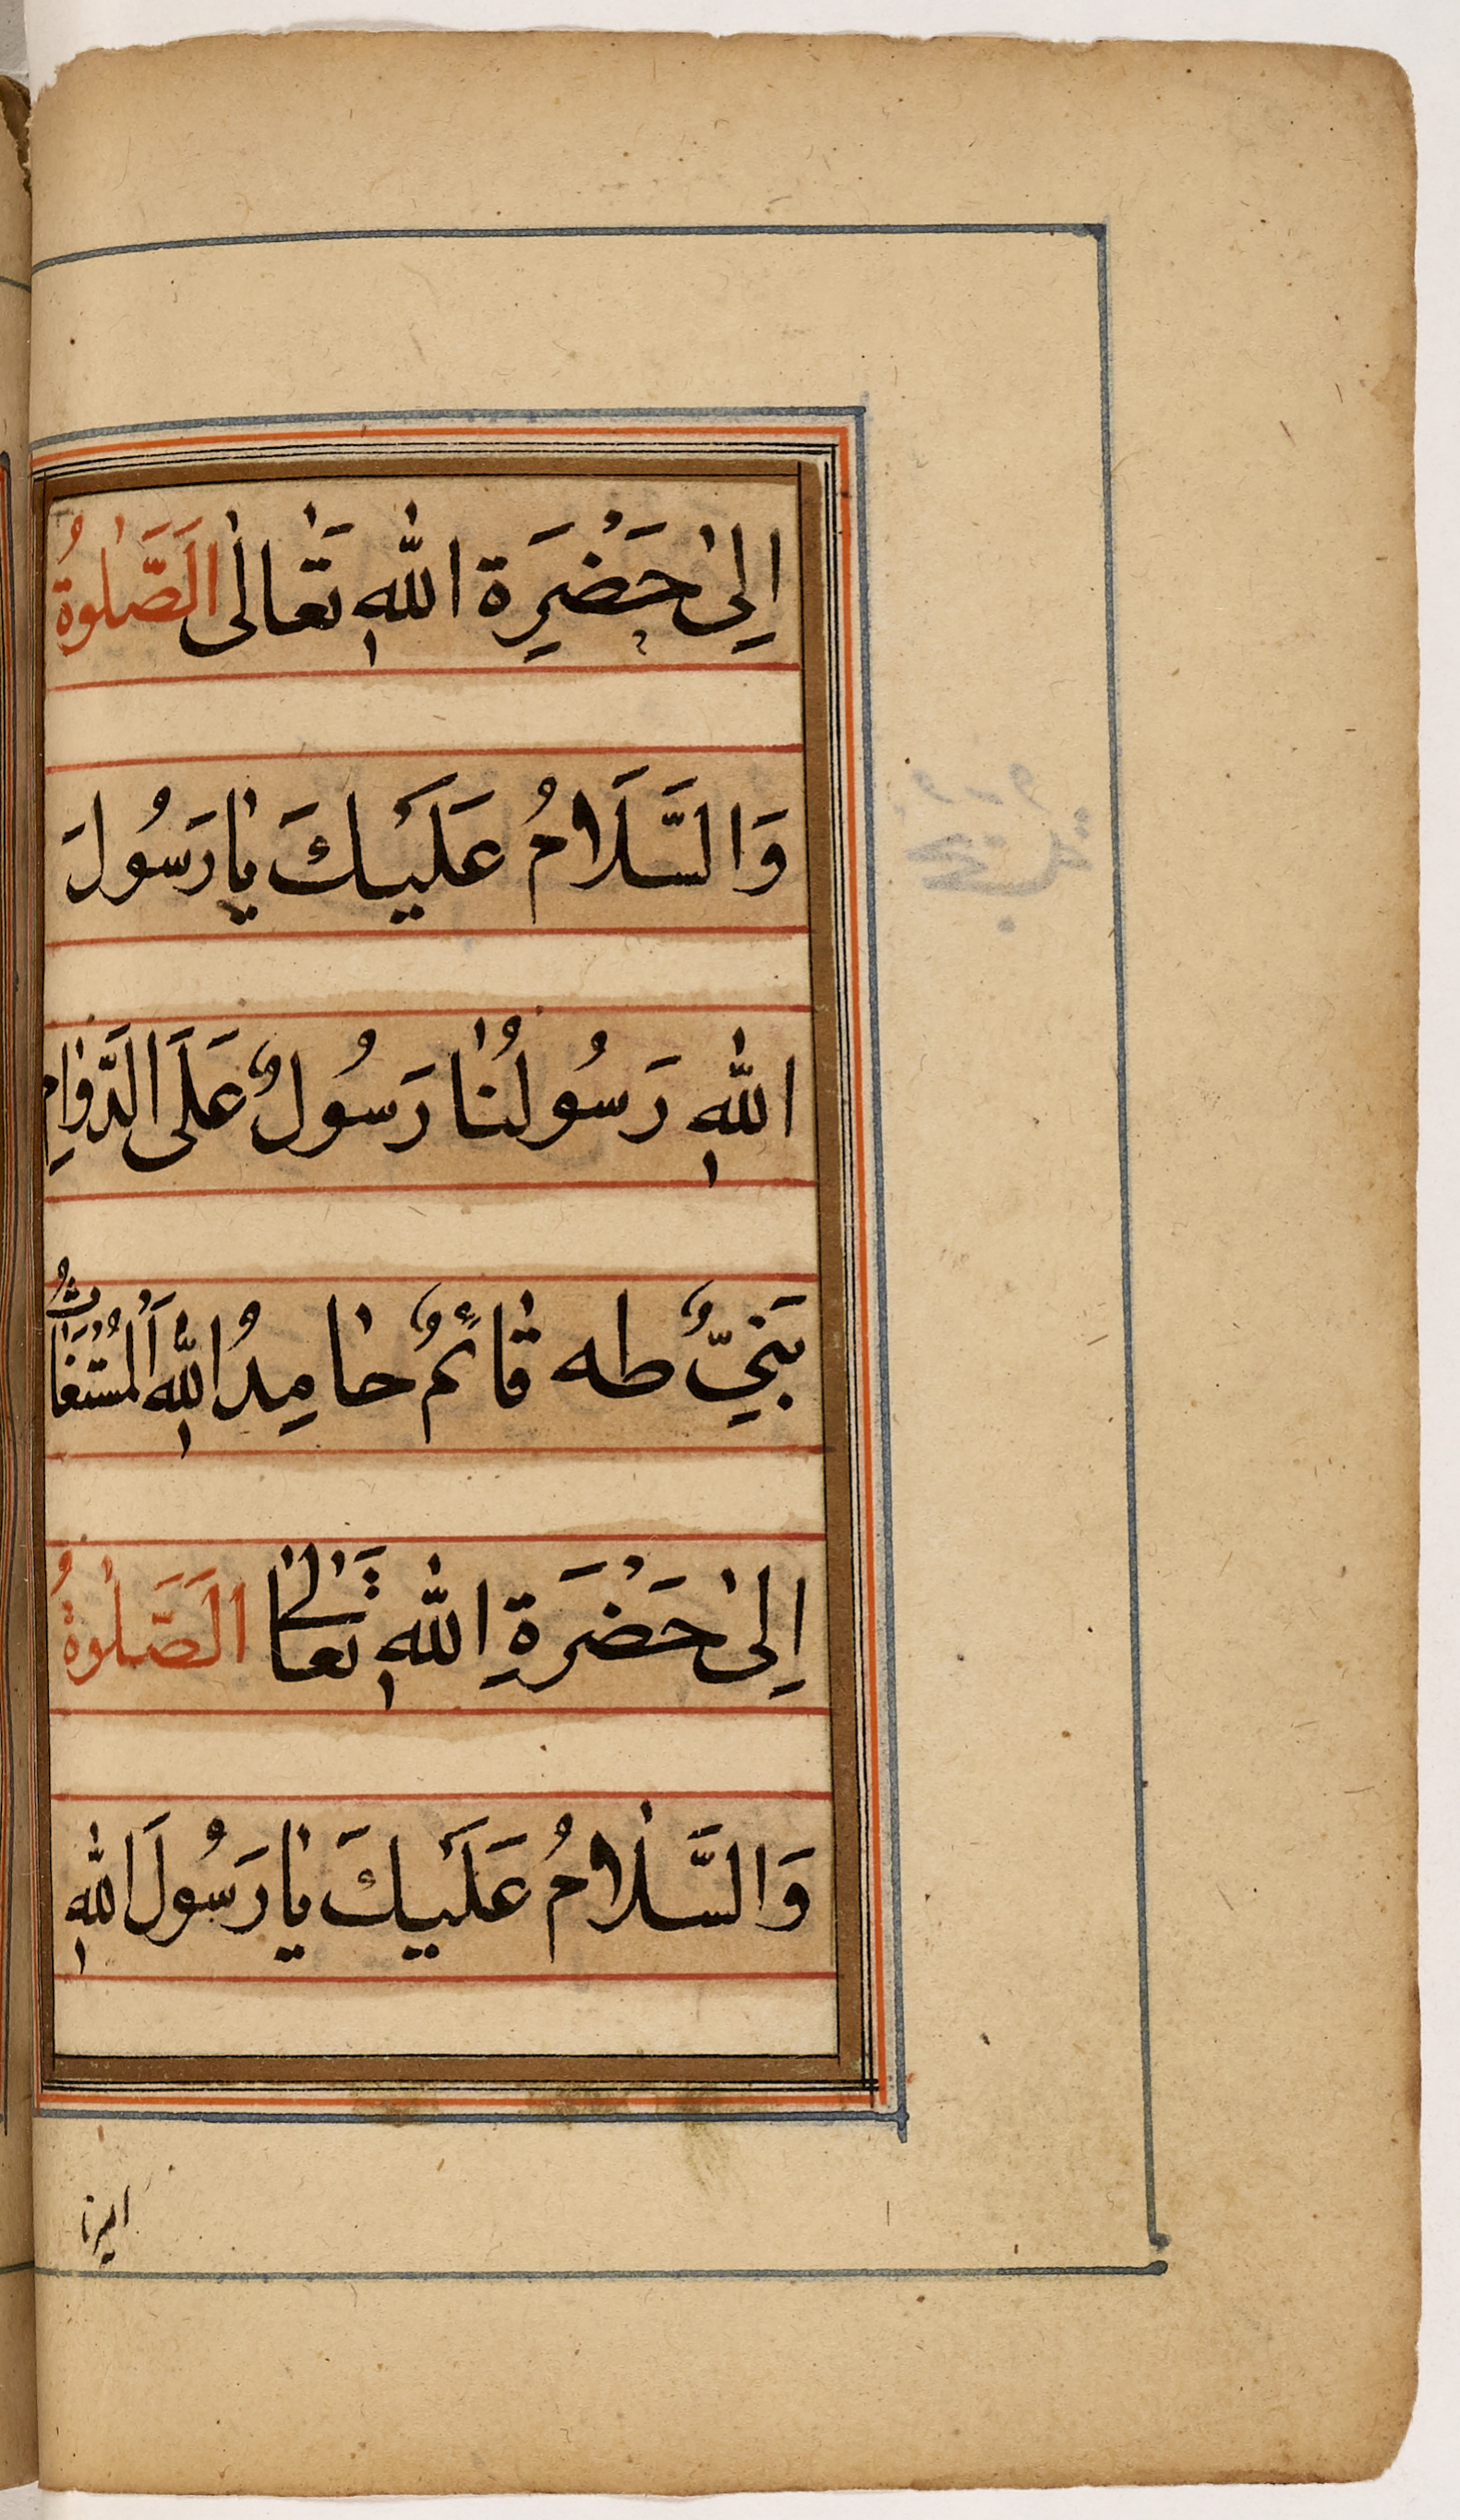 اِلىٰ حَضْرَِة اللهِ تَعٰالٰى اَلصَّلٰوةُ
وَالسَّلَامُ عَلَيْكَ يٰا رَسُولَ
اللهِ رَسُولُنٰا رَسُولٌ عَلَى الدَّوٰامِ
نَبِيٌّ طه قٰائمٌ حٰامِدُ اللهِ اَلْمُسْتَغٰاثُ
اِلىٰ حَضْرَةِ اللهِ تَعٰالىٰ اَلصَّلٰوةُ
وَالسَّلٰامُ عَلَيْكَ يٰا رَسُولَ اللهِ